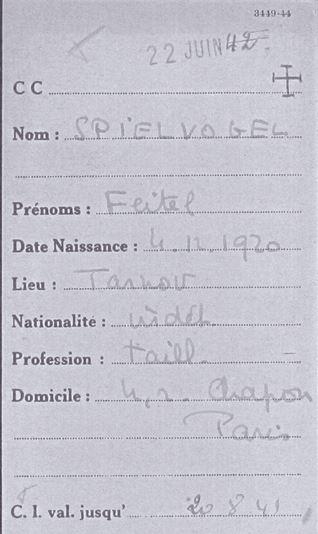 3449-44
22 JUIN 42
C C
Nom : SPIELVOGEL
Prénoms : Feitel
Date Naissance : 4.12.1920
Lieu : Tarnow
Nationalité : indét.
Profession : taill.
Domicile : 4, r. Chapon
Paris
C. I. val. jusqu' 20 8 41